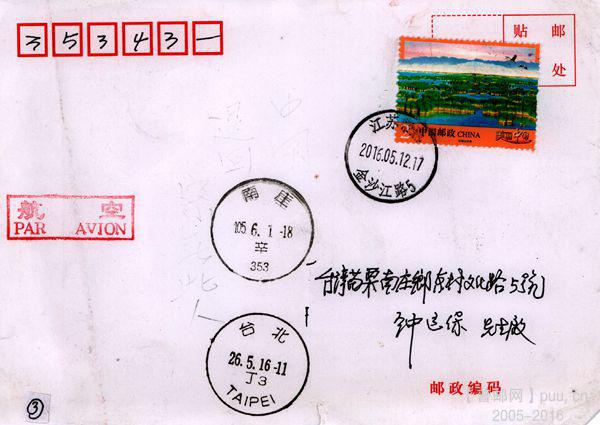 35343一
贴 邮
处
中国邮政 CHINA
江苏
2016.05.12.17
金沙江路5
航 空
PAR AVION
南庄
105.6.1-18
辛
353
台湾苗栗南庄鄉东村文化路53号
先生啟
台北
26.5.16-11
丁3
TAIPEI
邮政编码
③
puu.cn
2005-2016